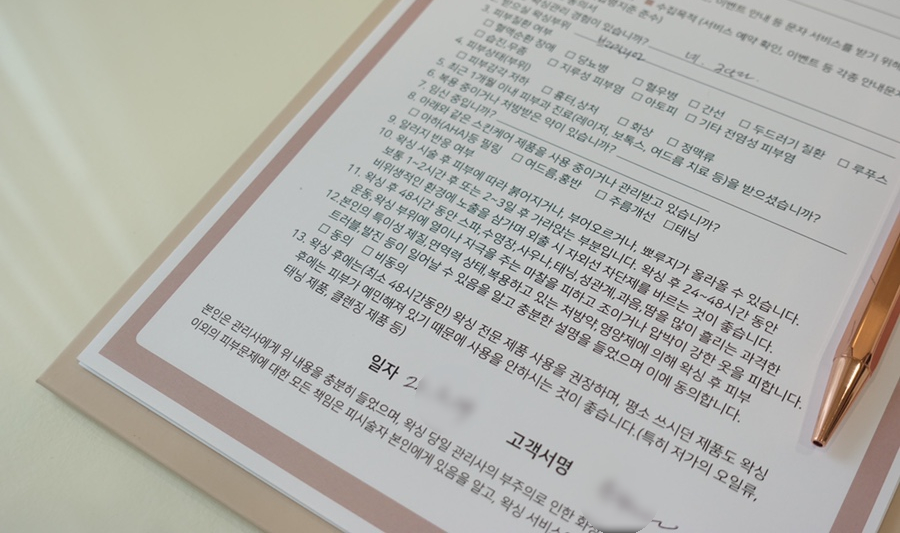 이벤트 안내 등 문자 서비스를 받기 위하
수집목적 (서비스 예약 확인, 이벤트 등 각종 안내문자
왁싱관리 경험이 있습니까? 네.
3. 받으실 왁싱부위 브라질리언
피부질환 여부
□ 혈액순환 장애 □ 당뇨병 □ 혈우병 □ 간선 □ 두드러기 질환 □ 루푸스
□ 습진, 무좀 □ 지루성 피부염 □ 아토피 □ 기타 전염성 피부염
4. 피부상태(부위)
□ 피부감각 저하 □ 흉터,상처 □ 화상 □ 정맥류
5. 최근 1개월 이내 피부과 진료(레이저, 보톡스, 여드름 치료 등)을 받으셨습니까?
6. 복용 중이거나 처방받은 약이 있습니까?
7. 임신 중입니까?
8. 아래와 같은 스킨케어 제품을 사용 중이거나 관리받고 있습니까?
□ 아하(AHA)등 필링 □ 여드름,홍반 □ 주름개선 □태닝
9. 알러지 반응 여부
10. 왁싱 시술 후 피부에 따라 붉어지거나, 부어오르거나, 뾰루지가 올라올 수 있습니다.
보통 1~2시간 후 또는 2~3일 후 가라앉는 부분입니다. 왁싱 후 24~48시간 동안
비위생적인 환경에 노출을 삼가며 외출 시 자외선 차단제를 바르는 것이 좋습니다.
11. 왁싱 후 48시간 동안 스파,수영장,사우나,태닝,성관계,과음,땀을 많이 흘리는 과격한
운동,왁싱 부위에 열이나 자극을 주는 마찰을 피하고 조이거나 압박이 강한 옷을 피합니다.
12.본인의 특이성 체질,면역력 상태,복용하고 있는 처방약,영양제에 의해 왁싱 후 피부
트러블,발진 등이 일어날 수 있음을 알고 충분한 설명을 들었으며 이에 동의합니다.
□ 동의 □ 비동의
13. 왁싱 후에는(최소 48시간동안) 왁싱 전문 제품 사용을 권장하며, 평소 쓰시던 제품도 왁싱
후에는 피부가 예민해져 있기 때문에 사용을 안하시는 것이 좋습니다.(특히 저가의 오일류,
태닝 제품, 클렌징 제품 등)
일자 2
고객서명
본인은 관리사에게 위 내용을 충분히 들었으며, 왁싱 당일 관리사의 부주의로 인한 화상
이외의 피부문제에 대한 모든 책임은 피시술자 본인에게 있음을 알고, 왁싱 서비스